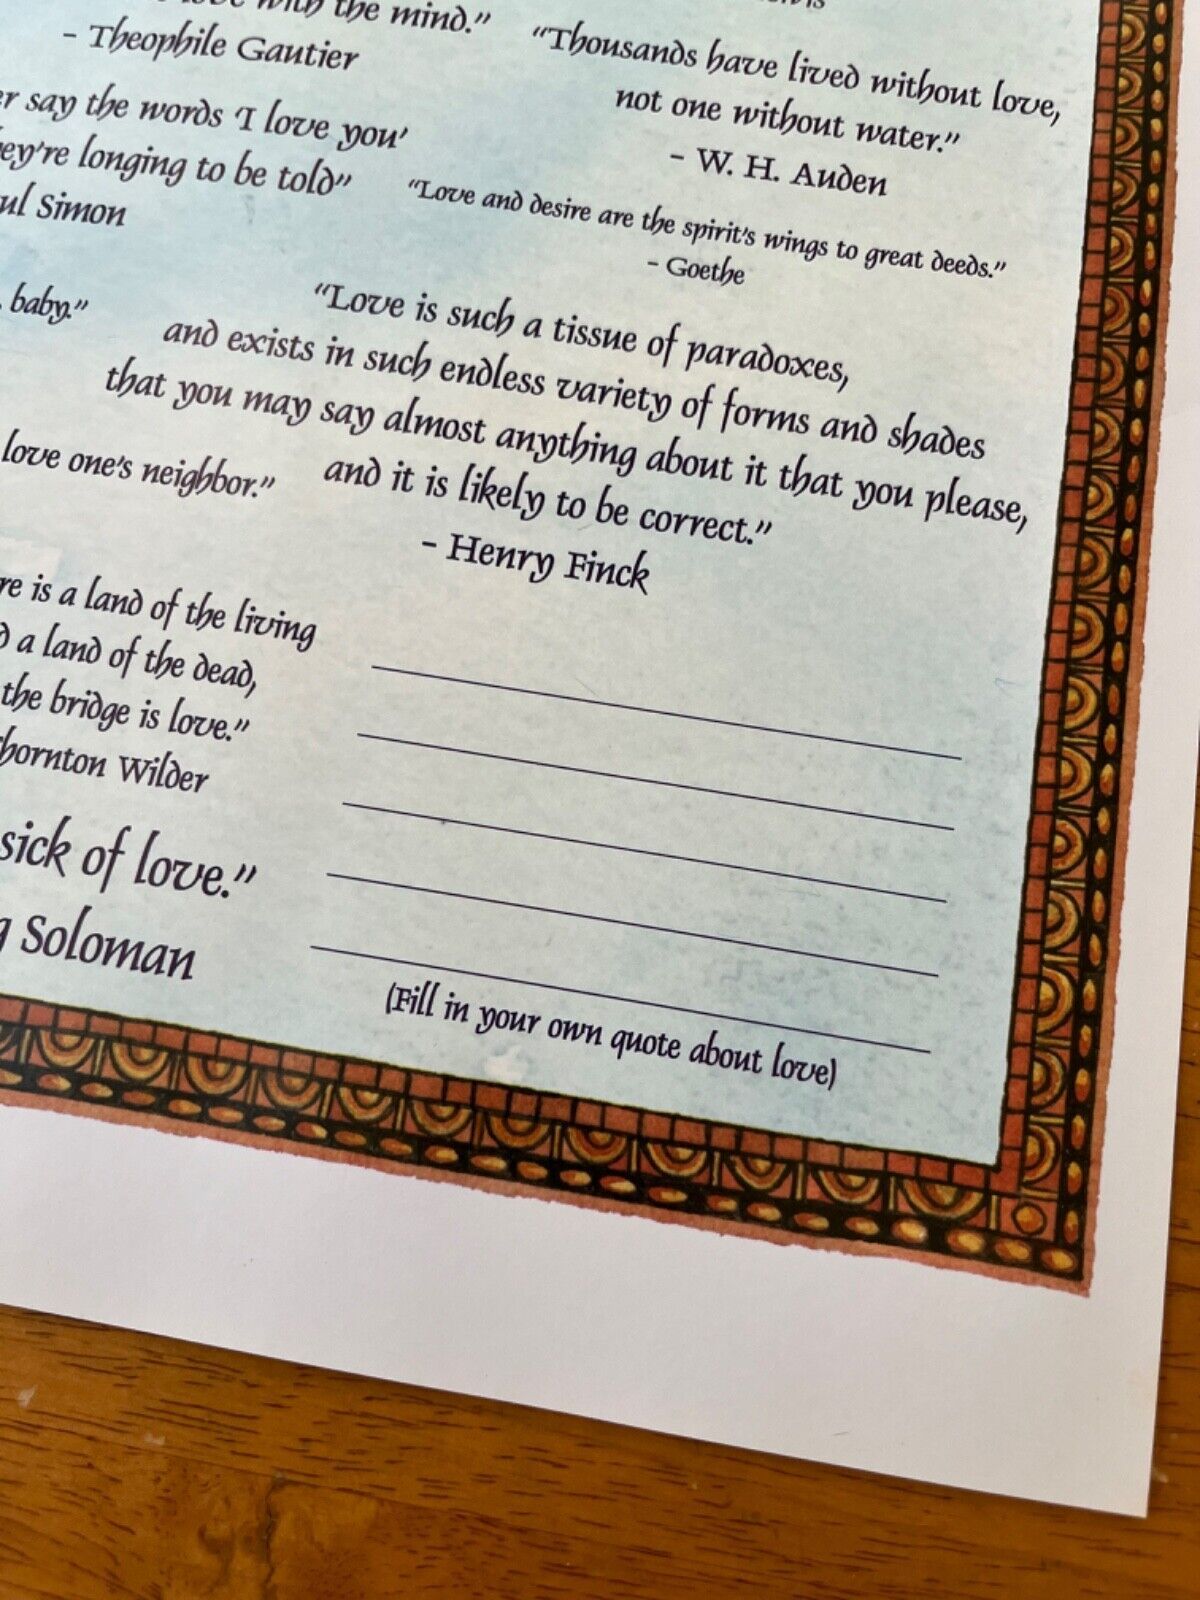 with the mind."
- Theophile Gautier
"Thousands have lived without love,
not one without water."
- W. H. Auden
say the words 'I love you'
longing to be told"
Simon
"Love and desire are the spirit's wings to great deeds."
- Goethe
baby."
"Love is such a tissue of paradoxes,
and exists in such endless variety of forms and shades
that you may say almost anything about it that you please,
and it is likely to be correct."
- Henry Finck
love one's neighbor."
is a land of the living
a land of the dead,
the bridge is love."
Wilder
sick of love."
Soloman
(Fill in your own quote about love)